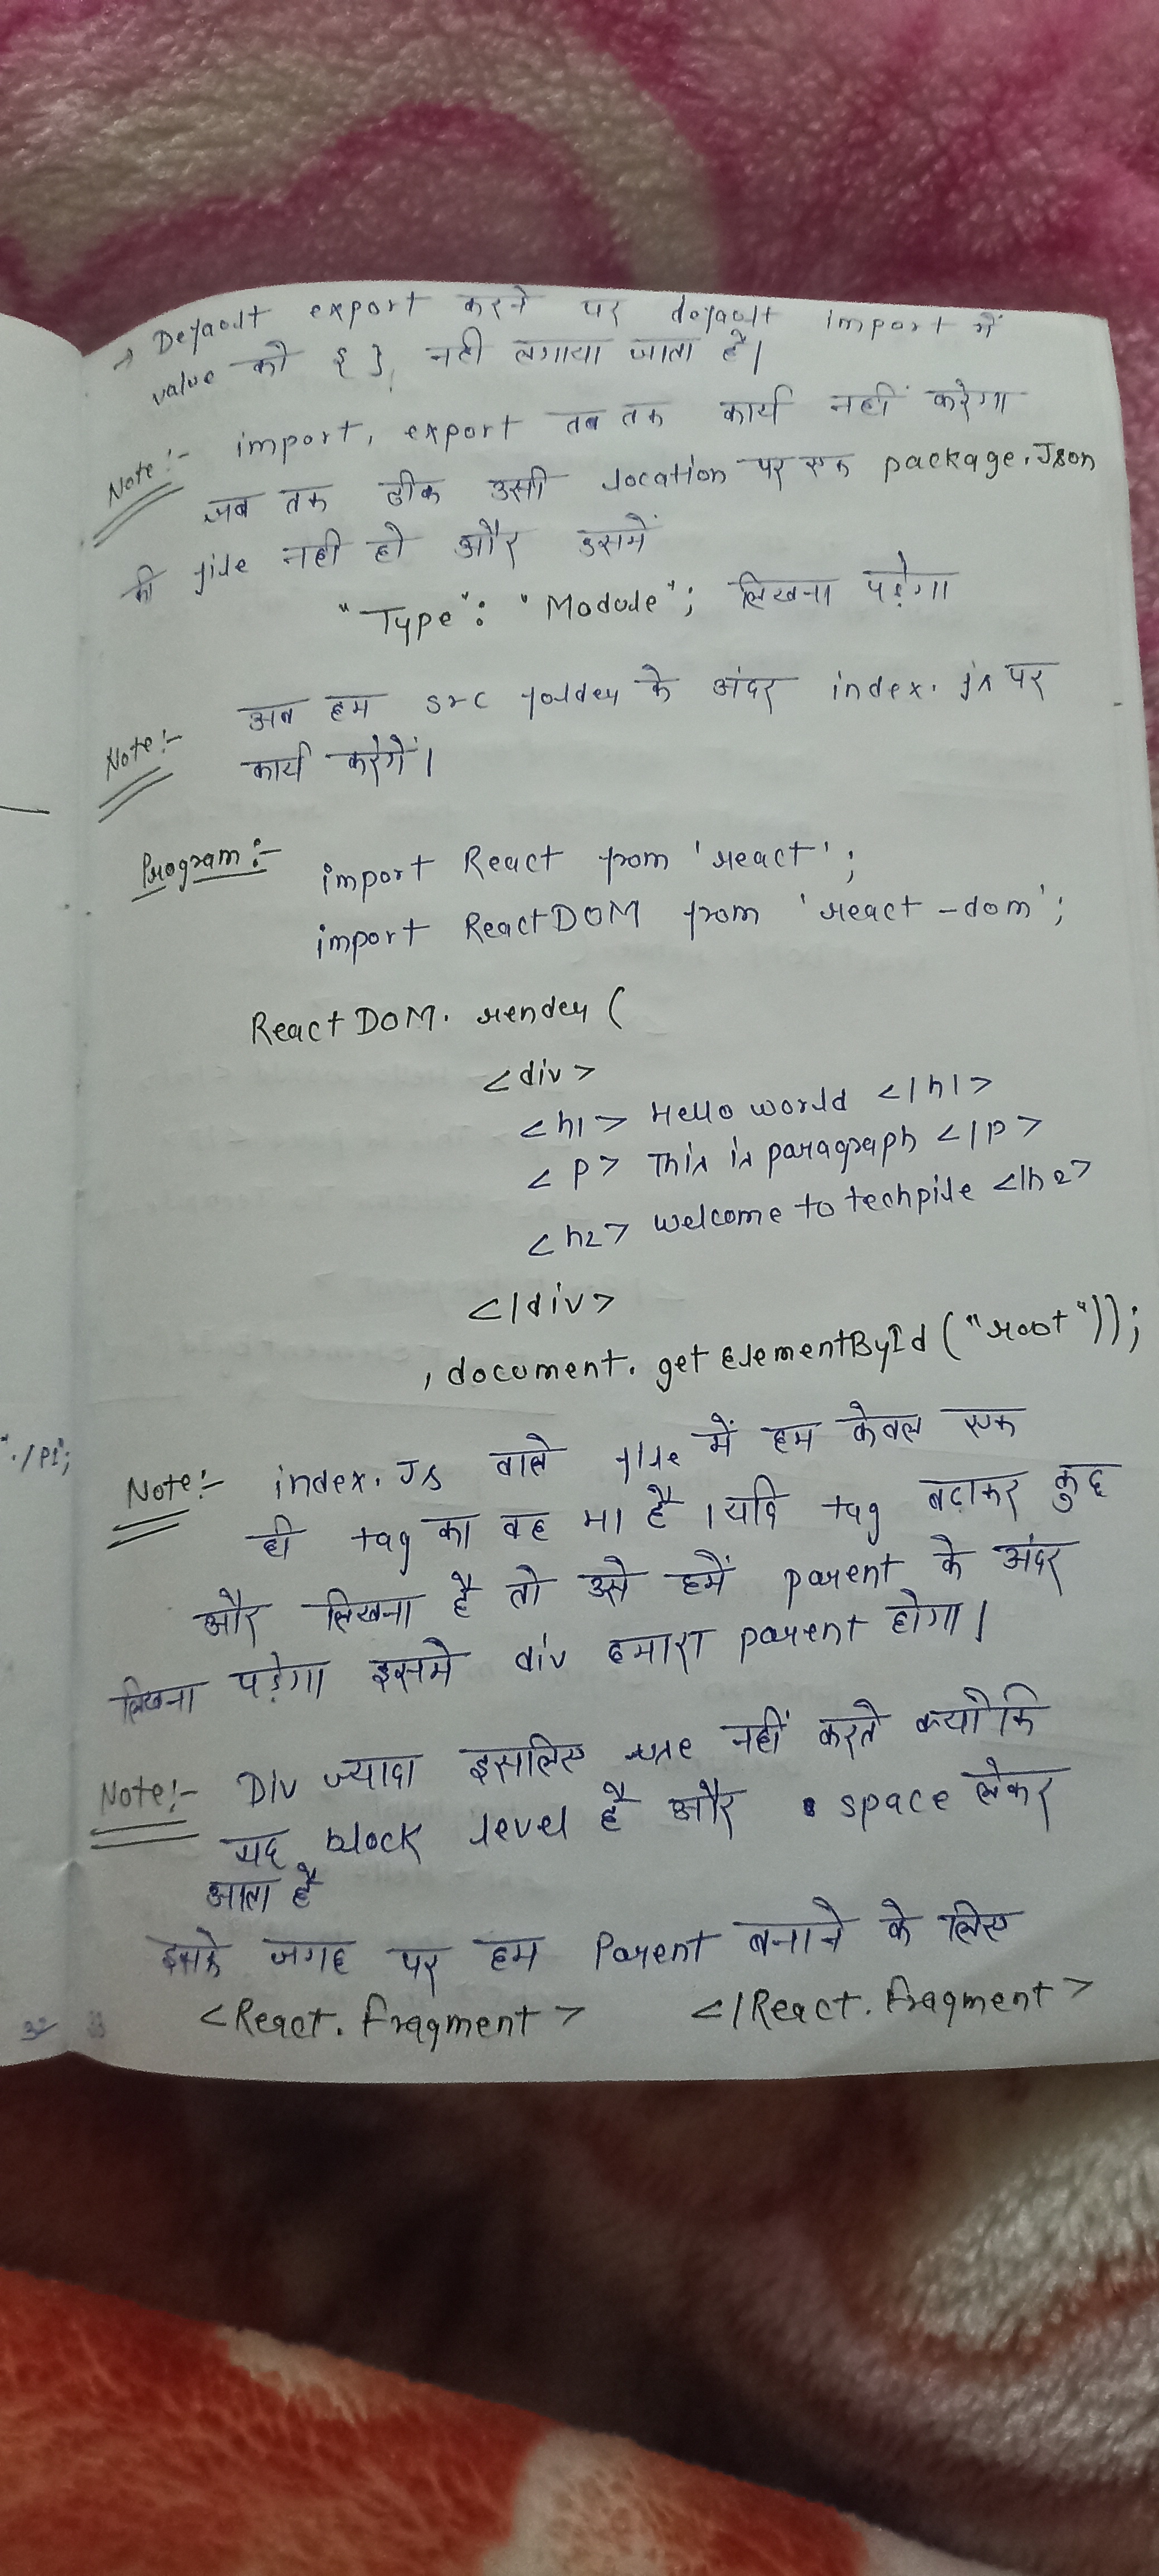 → Default export करने पर default import में
value को { } नही लगाया जाता है।
Note:- import, export तब तक कार्य नहीं करेगा
जब तक ठीक उसी location पर एक package.Json
की file नही हो और उसमें
"Type": "Module"; लिखना पड़ेगा
Note:- अब हम src folder के अंदर index.js पर
कार्य करेगें।
Program:- import React from 'react';
import ReactDOM from 'react-dom';
ReactDOM.render(
<div>
<h1> Hello world </h1>
<p> This is paragraph </p>
<h2> Welcome to techpile </h2>
</div>
, document.getElementById("root"));
"./P1";
Note:- index.Js वाले file में हम केवल एक
ही tag का वह मा है। यदि tag बढ़ाकर कुछ
और लिखना है तो उसे हमें parent के अंदर
लिखना पड़ेगा इसमे div हमारा parent होगा।
Note:- Div ज्यादा इसलिए use नहीं करते क्योकि
यह block level है और space लेकर
आता है
इसके जगह पर हम Parent बनाने के लिए
<React.Fragment> </React.Fragment>